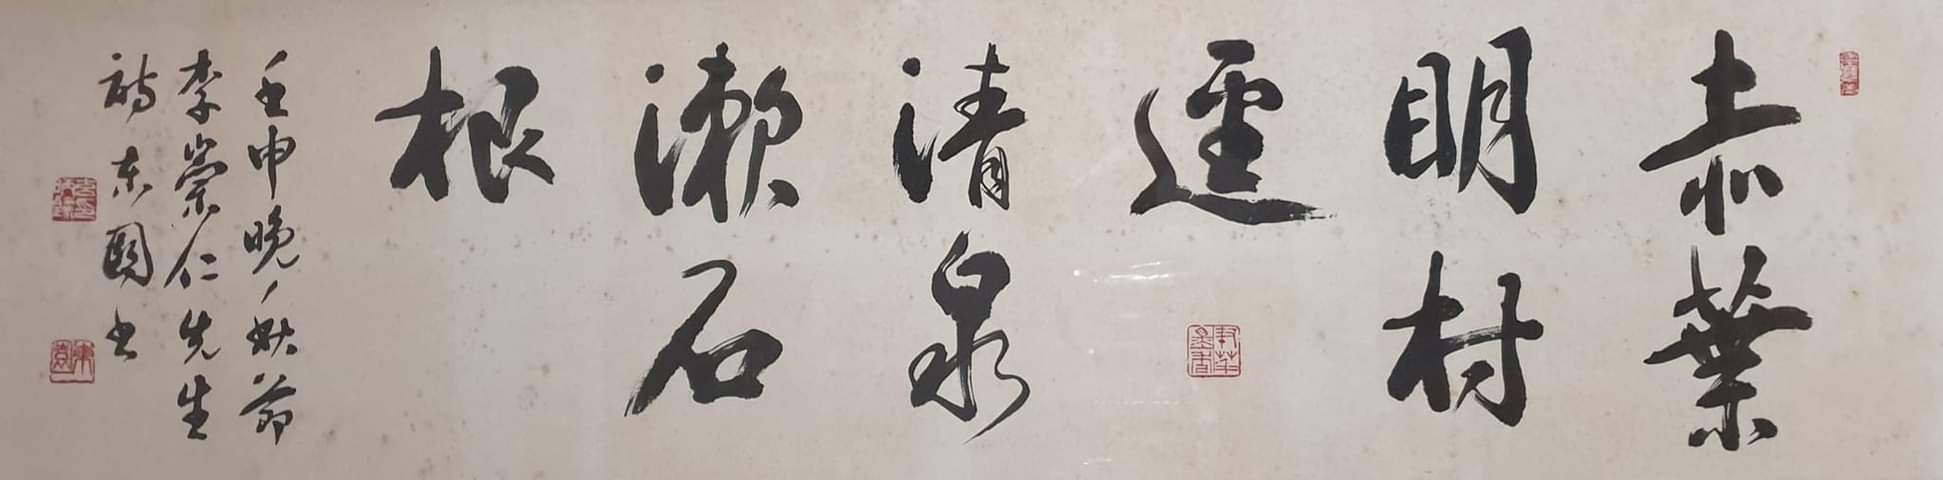 赤葉
明村
逕
清泉
漱石
根
壬申晚秋節
李崇仁先生
詩东園书